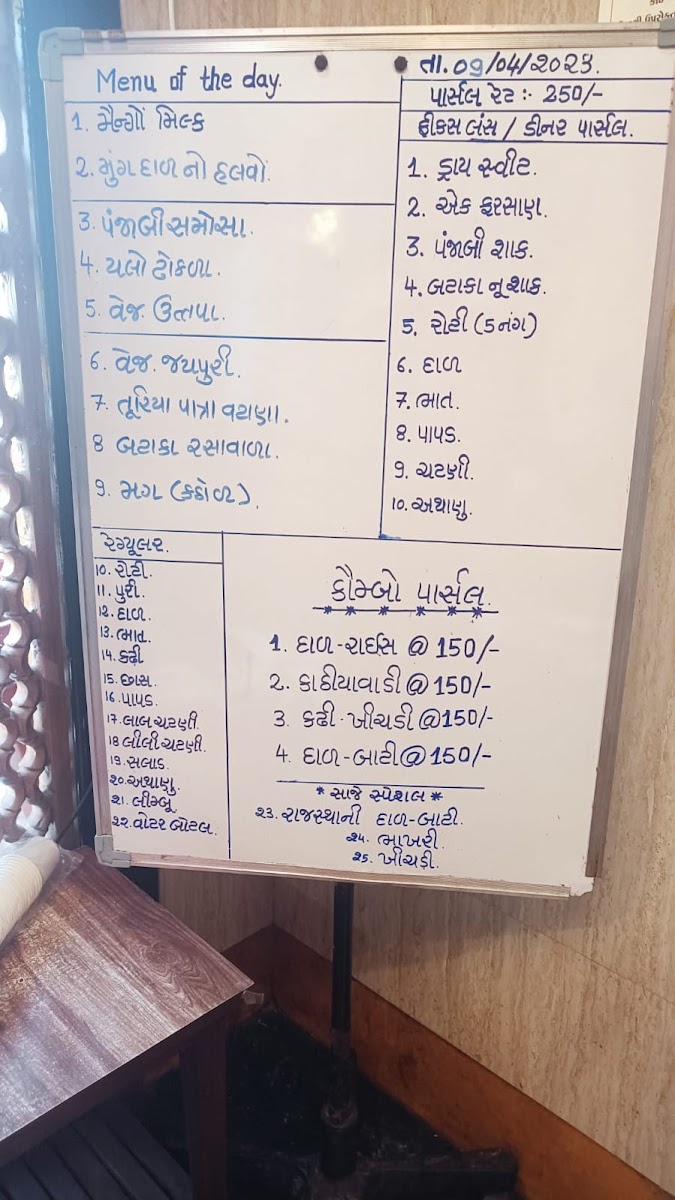 Menu of the day.
1. મૈન્ગોં મિલ્ક
2. મુંગ દાળ નો હલવો.
3. પંજાબી સમોસા.
4. યલો ઢોકળા.
5. વેજ. ઉત્તપા.
6. વેજ. જયપુરી.
7. તૂરિયા પાત્રા વટાણા.
8 બટાકા રસાવાળા.
9. મગ (કઠોળ).
તા. 09/04/૨૦૨૩.
પાર્સલ રેટ :- 250/-
ફીકસ લંસ / ડીનર પાર્સલ.
1. ડ્રાય સ્વીટ.
2. એક ફરસાણ.
3. પંજાબી શાક.
4. બટાકા નૂ શાક.
5. રોટી (5 નંગ)
6. દાળ
7. ભાત.
8. પાપડ.
9. ચટણી.
10. અથાણુ.
રેગ્યૂલર.
10. રોટી.
11. પુરી.
12. દાળ.
13. ભાત.
14. કઢી
15. છાસ.
16. પાપડ.
17. લાલ ચટણી.
18 લીલી ચટણી.
19. સલાડ.
૨0. અથાણુ.
૨1. લીમ્બૂ
૨૨. વોટર બોટલ.
કૌમ્બો પાર્સલ.
1. દાળ-રાઈસ @ 150/-
2. કાઠીયાવાડી @ 150/-
3. કઢી-ખીચડી @ 150/-
4. દાળ-બાટી @ 150/-
* સાજે સ્પેશલ *
૨3. રાજસ્થાની દાળ-બાટી.
૨4. ભાખરી.
૨5. ખીચડી.